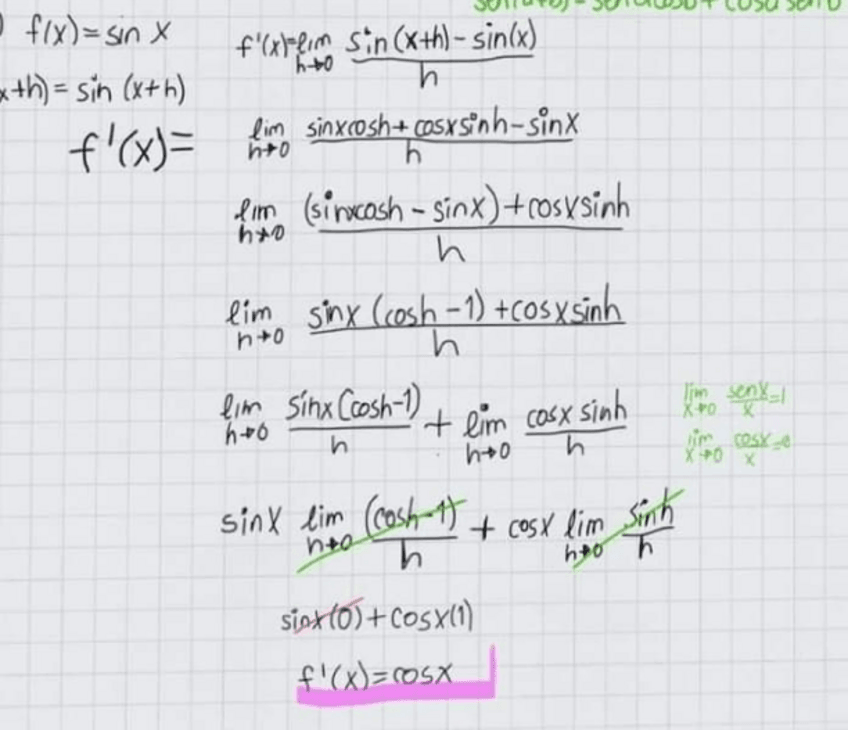 f(x)=sin x
f'(x)=lim h→0 sin(x+h)-sin(x) / h
x+h)= sin (x+h)
f'(x)=
lim h→0 sinxcosh+cosxsinh-sinx / h
lim h→0 (sinxcosh - sinx)+cosxsinh / h
lim h→0 sinx (cosh -1) +cosxsinh / h
lim h→0 sinx(cosh-1) / h + lim h→0 cosx sinh / h
lim x→0 senx / x =1
lim x→0 cosx / x =0
sinx lim h→0 (cosh-1) / h + cosx lim h→0 sinh / h
sinx(0)+cosx(1)
f'(x)=cosx